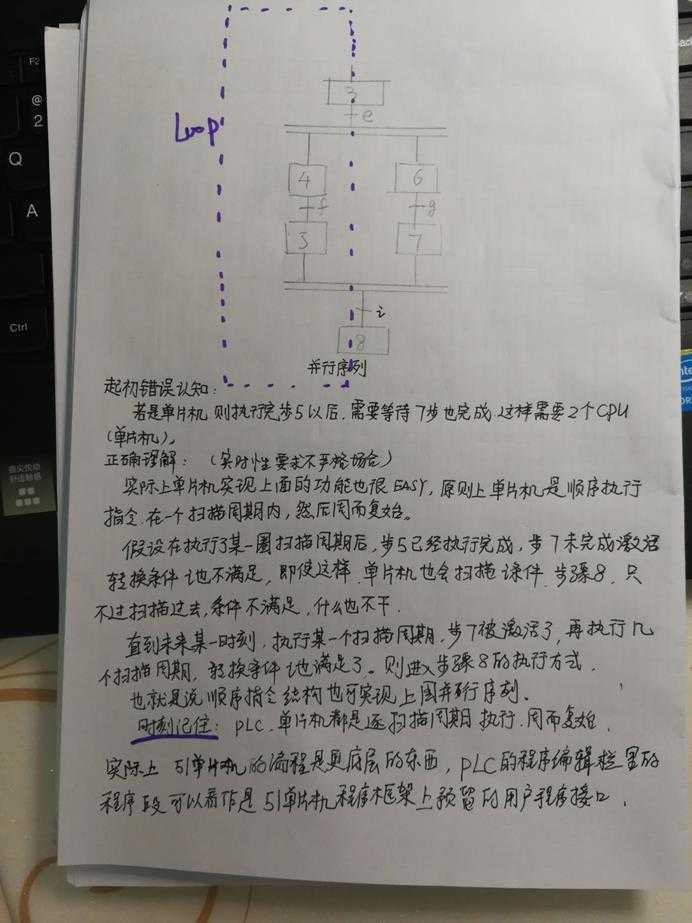 F2
@
2
Q
A
Ctrl
指尖悦动
舒适触感
intel
Loop
3
e
4
6
f
g
5
7
i
8
并行序列
起初错误认知:
若是单片机 则执行完步5以后,需要等待7步也完成 这样需要2个CPU
(单片机)。
正确理解: (实时性要求不严格场合)
实际上单片机实现上面的功能也很EASY, 原则上单片机是顺序执行
指令,在一个扫描周期内,然后周而复始。
假设在执行了某一圈扫描周期后,步5已经执行完成,步7未完成激活
转换条件i也不满足,即使这样,单片机也会扫描i条件,步骤8,只
不过扫描过去,条件不满足,什么也不干.
直到未来某一时刻,执行某一个扫描周期,步7被激活了,再执行几
个扫描周期,转换条件i也满足了。则进入步骤8的执行方式.
也就是说顺序指令结构也可实现上图并行序列.
时刻记住: PLC,单片机都是逐扫描周期执行.周而复始.
实际上 51单片机的流程是更底层的东西, PLC的程序编辑栏里的
程序段可以看作是51单片机程序框架上预留的用户程序接口.